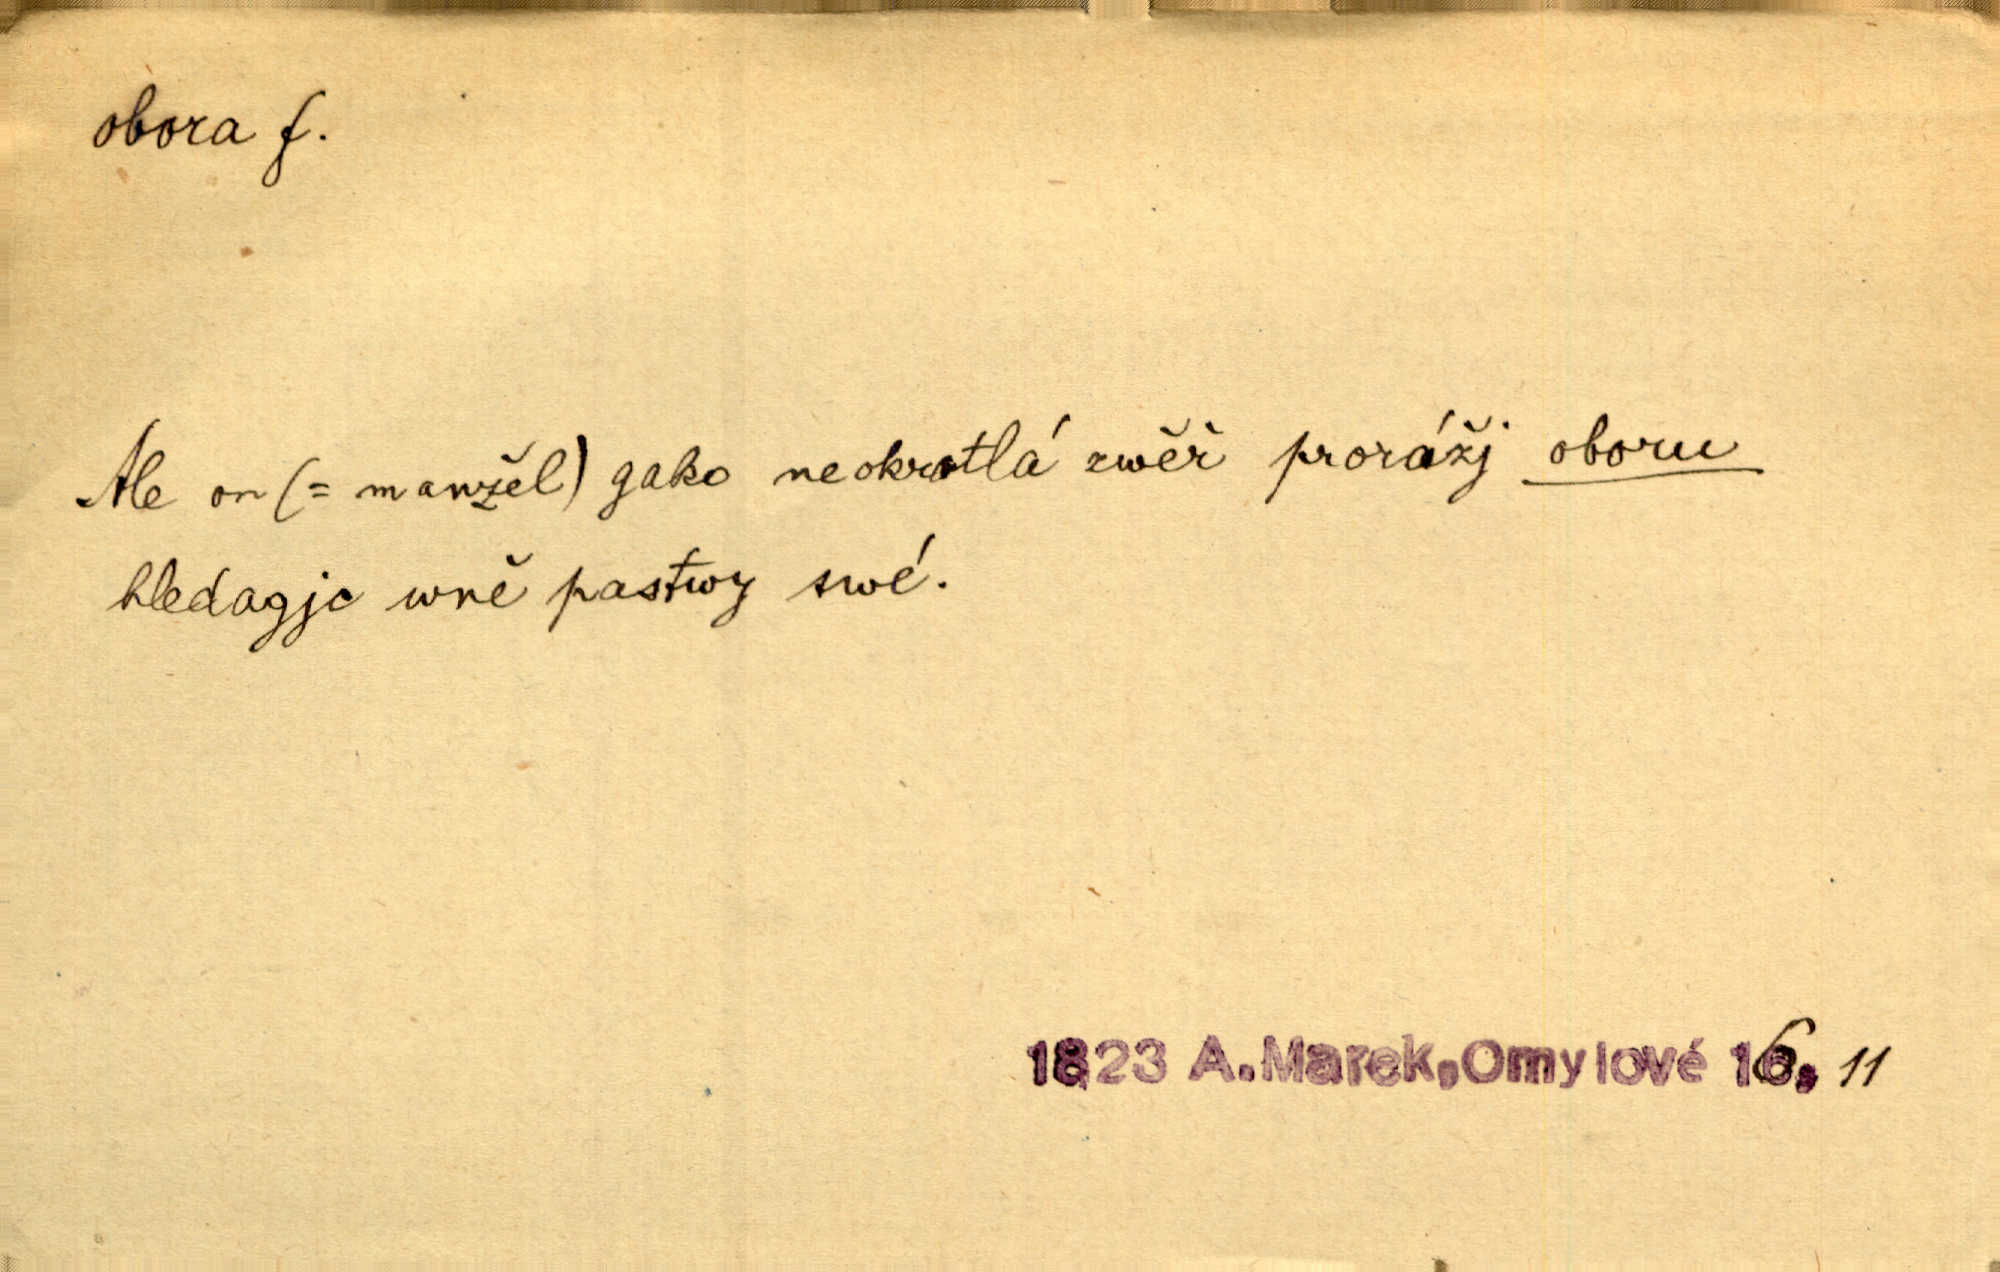 obora f.
Ale on (= manžel) gako neokrotlá zwěř prorážj oboru
hledagjc wně pastwy swé.
1823 A.Marek,Omylové 16, 11